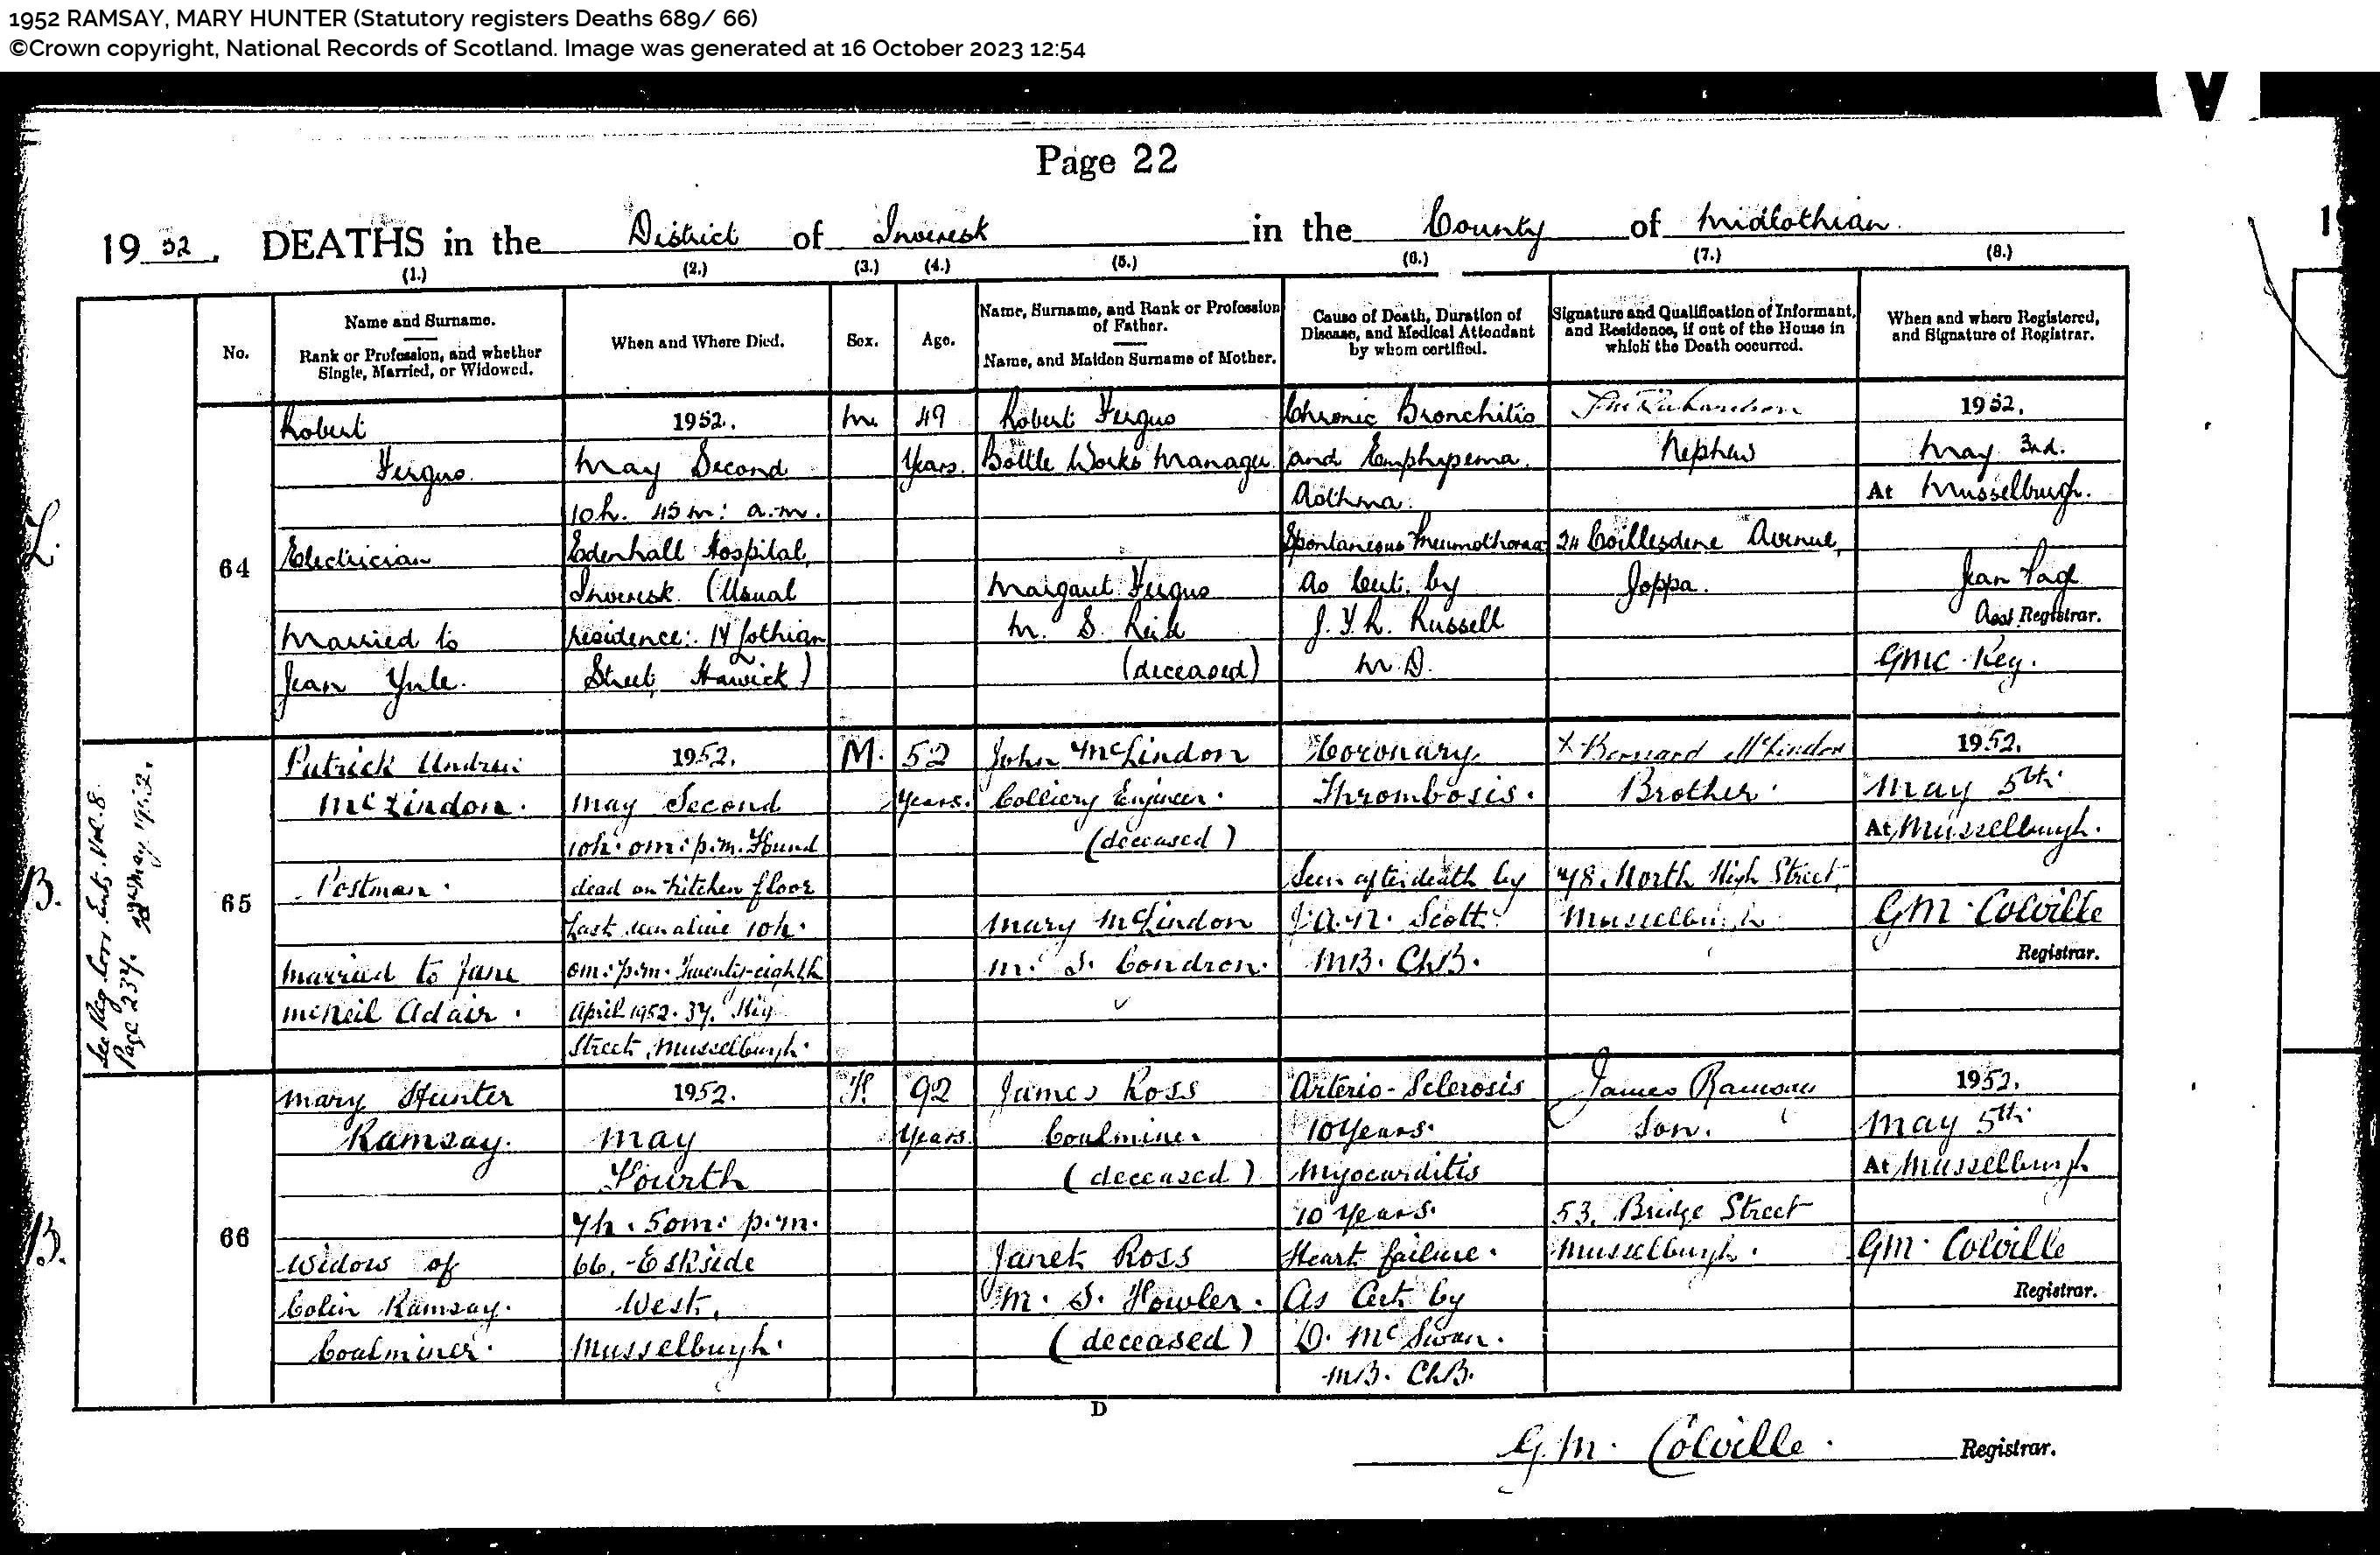 1952 RAMSAY, MARY HUNTER (Statutory registers Deaths 689/ 66)
©Crown copyright, National Records of Scotland. Image was generated at 16 October 2023 12:54
Page 22
1952. DEATHS in the District of Inveresk in the County of Midlothian
(1.) (2.) (3.) (4.) (5.) (6.) (7.) (8.)
No.
Name and Surname.
Rank or Profession, and whether
Single, Married, or Widowed.
When and Where Died.
Sex.
Age.
Name, Surname, and Rank or Profession
of Father.
Name, and Maiden Surname of Mother.
Cause of Death, Duration of
Disease, and Medical Attendant
by whom certified.
Signature and Qualification of Informant,
and Residence, if out of the House in
which the Death occurred.
When and where Registered,
and Signature of Registrar.
L.
64
Robert
Fergus
Electrician
Married to
Jean Yule.
1952.
May Second
10h. 45m: a.m.
Edenhall Hospital,
Inveresk (Usual
residence: 14 Lothian
Street, Hawick)
M.
49
Years.
Robert Fergus
Bottle Works Manager
Margaret Fergus
M. S. Reid
(deceased)
Chronic Bronchitis
and Emphysema.
Asthma.
Spontaneous Pneumothorax
As Cert. by
J. Y. R. Russell
M.D.
Richardson
Nephew
24 Coillesdene Avenue,
Joppa.
1952.
May 3rd.
At Musselburgh.
Jean Page
Asst Registrar.
GMC. Reg.
B.
See Reg. Corr. Ents. Vol. 8.
Page 237. May 1952.
65
Patrick Andrew
McLindon.
Postman.
Married to Jane
McNeil Adair.
1952.
May Second
10h. 0m: p.m. Found
dead on kitchen floor
Last seen alive 10h.
0m: p.m. Twenty-eighth
April 1952. 37. Hig
Street, Musselburgh.
M.
52
Years.
John McLindon
Colliery Engineer.
(deceased)
Mary McLindon
M. S. Condron.
Coronary
Thrombosis.
Seen after death by
J. A. N. Scott
MB. ChB.
x Bernard McLindon
Brother.
78. North High Street,
Musselburgh
1952.
May 5th
At Musselburgh.
GM. Colville
Registrar.
B.
66
Mary Hunter
Ramsay.
Widow of
Colin Ramsay.
Coalminer.
1952.
May
Fourth
7h. 50m: p.m.
66. Eskside
West,
Musselburgh.
F.
92
Years.
James Ross
Coalminer
(deceased)
Janet Ross
M. S. Fowler.
(deceased)
Arterio-Sclerosis
10 years.
Myocarditis
10 Years.
Heart failure.
As Cert. by
D. McSwan.
MB. ChB.
James Ramsay
Son.
53. Bridge Street
Musselburgh.
1952.
May 5th
At Musselburgh
GM. Colville
Registrar.
D
G.M. Colville. Registrar.